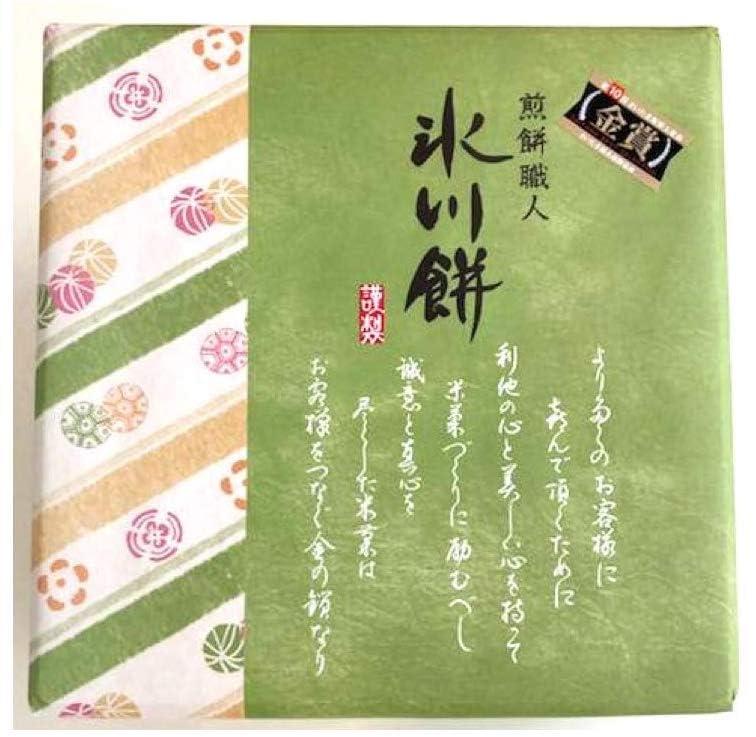 金賞
煎餅職人
氷川餅
謹製
より多くのお客様に
喜んで頂くために
利他の心と美しい心を持って
米菓づくりに励むべし
誠意と真心を
尽くした米菓は
お客様をつなぐ金の鎖なり